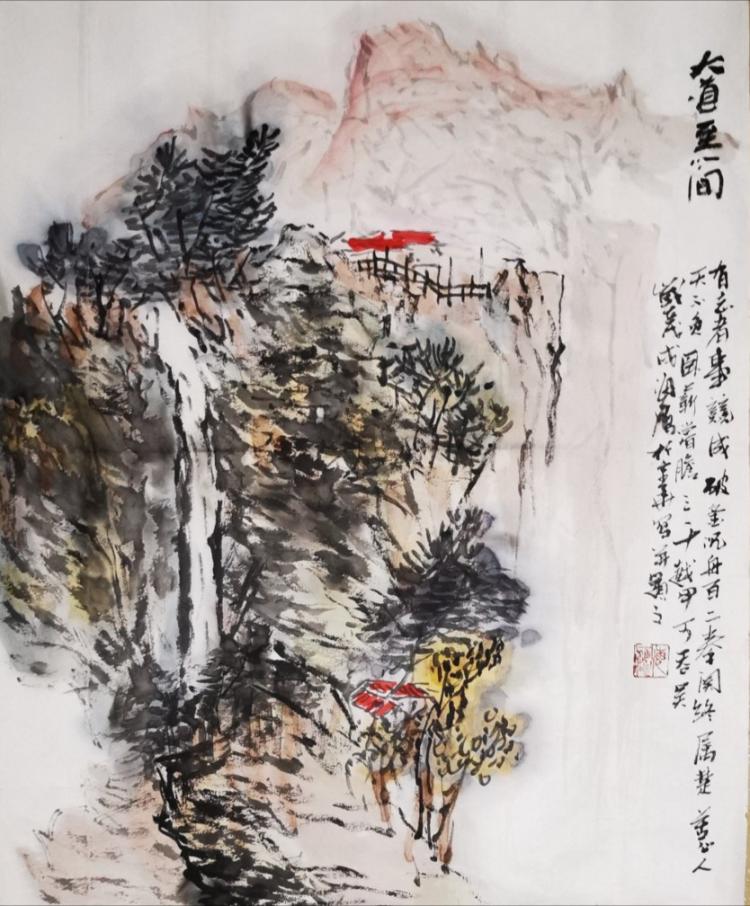 大道至简
有志者事競成破釜沉舟百二秦関终属楚苦心人
天不负卧薪嘗膽三千越甲可吞吴
戌海於京华写并题之